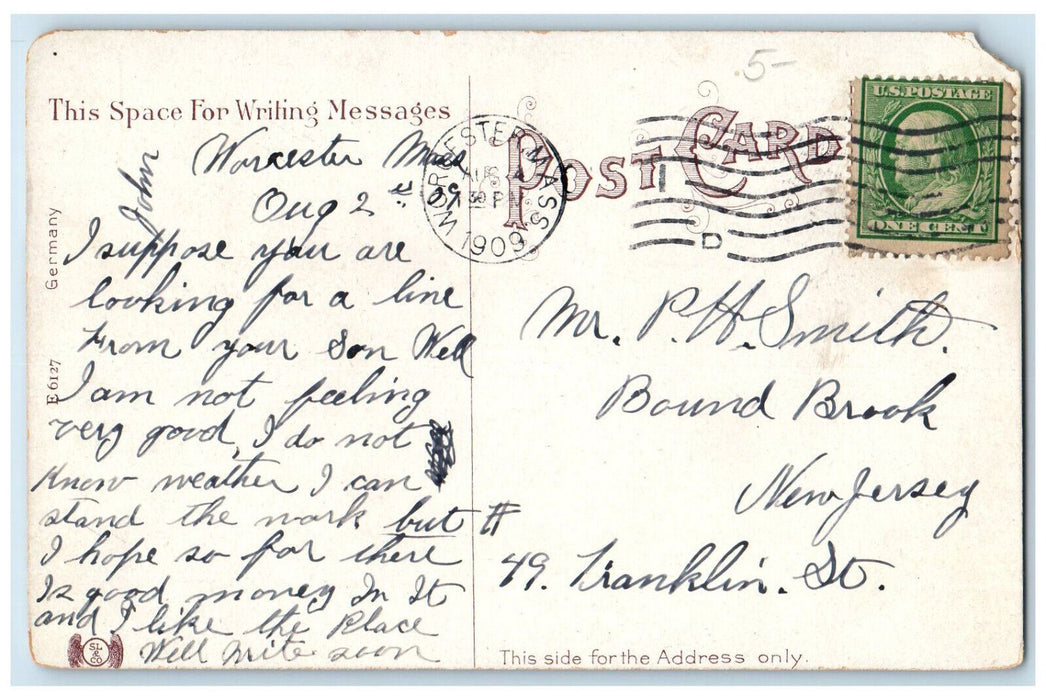 .5-
This Space For Writing Messages
Worcester Mass
Oug 2
John
I suppose you are
looking for a line
From your Son Well
I am not feeling
very good, I do not
Know weather I can
stand the work but
I hope so for there
Is good money In It
and I like the Place
Well write soon
Germany
E 6127
SL & CO
POST CARD
WORCESTER MASS
AUG
30 PM
1909
D
U.S. POSTAGE
ONE CENT
Mr. P. H. Smith.
Bound Brook
New Jersey
#
49. Franklin. St.
This side for the Address only.